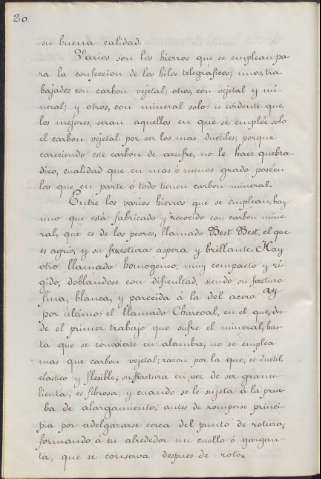 20.
su buena calidad.
Varios son los hierros que se emplean pa-
ra la confeccion de los hilos telegraficos; unos, tra-
bajados con carbon vejetal; otros, con vejetal y mi-
neral; y otros, con mineral solo: es evidente que
los mejores, seran aquellos en que se empleé solo
el carbon vejetal por ser los mas dúctiles; porque
careciendo este carbon de azufre, no le hace quebra-
dizo, cualidad que en mas ó menos grado poseén
los que en parte ó todo tienen carbon mineral.
Entre los varios hierros que se emplean, hay
uno que está fabricado y recocido con carbon mine-
ral, que es de los peores, llamado Best Best, el que
es agrio, y su fractura aspera y brillante. Hay
otro llamado homogeneo, muy compacto y rí-
gido, doblandose con dificultad, siendo su fractura
fina, blanca, y parecida á la del acero. Y
por último el llamado Charcoal, en el que, des-
de el primer trabajo que sufre el mineral, has-
ta que se convierte en alambre, no se emplea
mas que carbon vejetal; razon por la que, es ductil,
elastico y flexible; su fractura en vez de ser granu-
lienta, es fibrosa, y cuando se le sujeta á la prue-
ba de alargamiento, antes de romperse princi-
pia por adelgazarse cerca del punto de rotura,
formando á su alrededor un cuello ó gargan-
ta, que se conserva despues de roto.